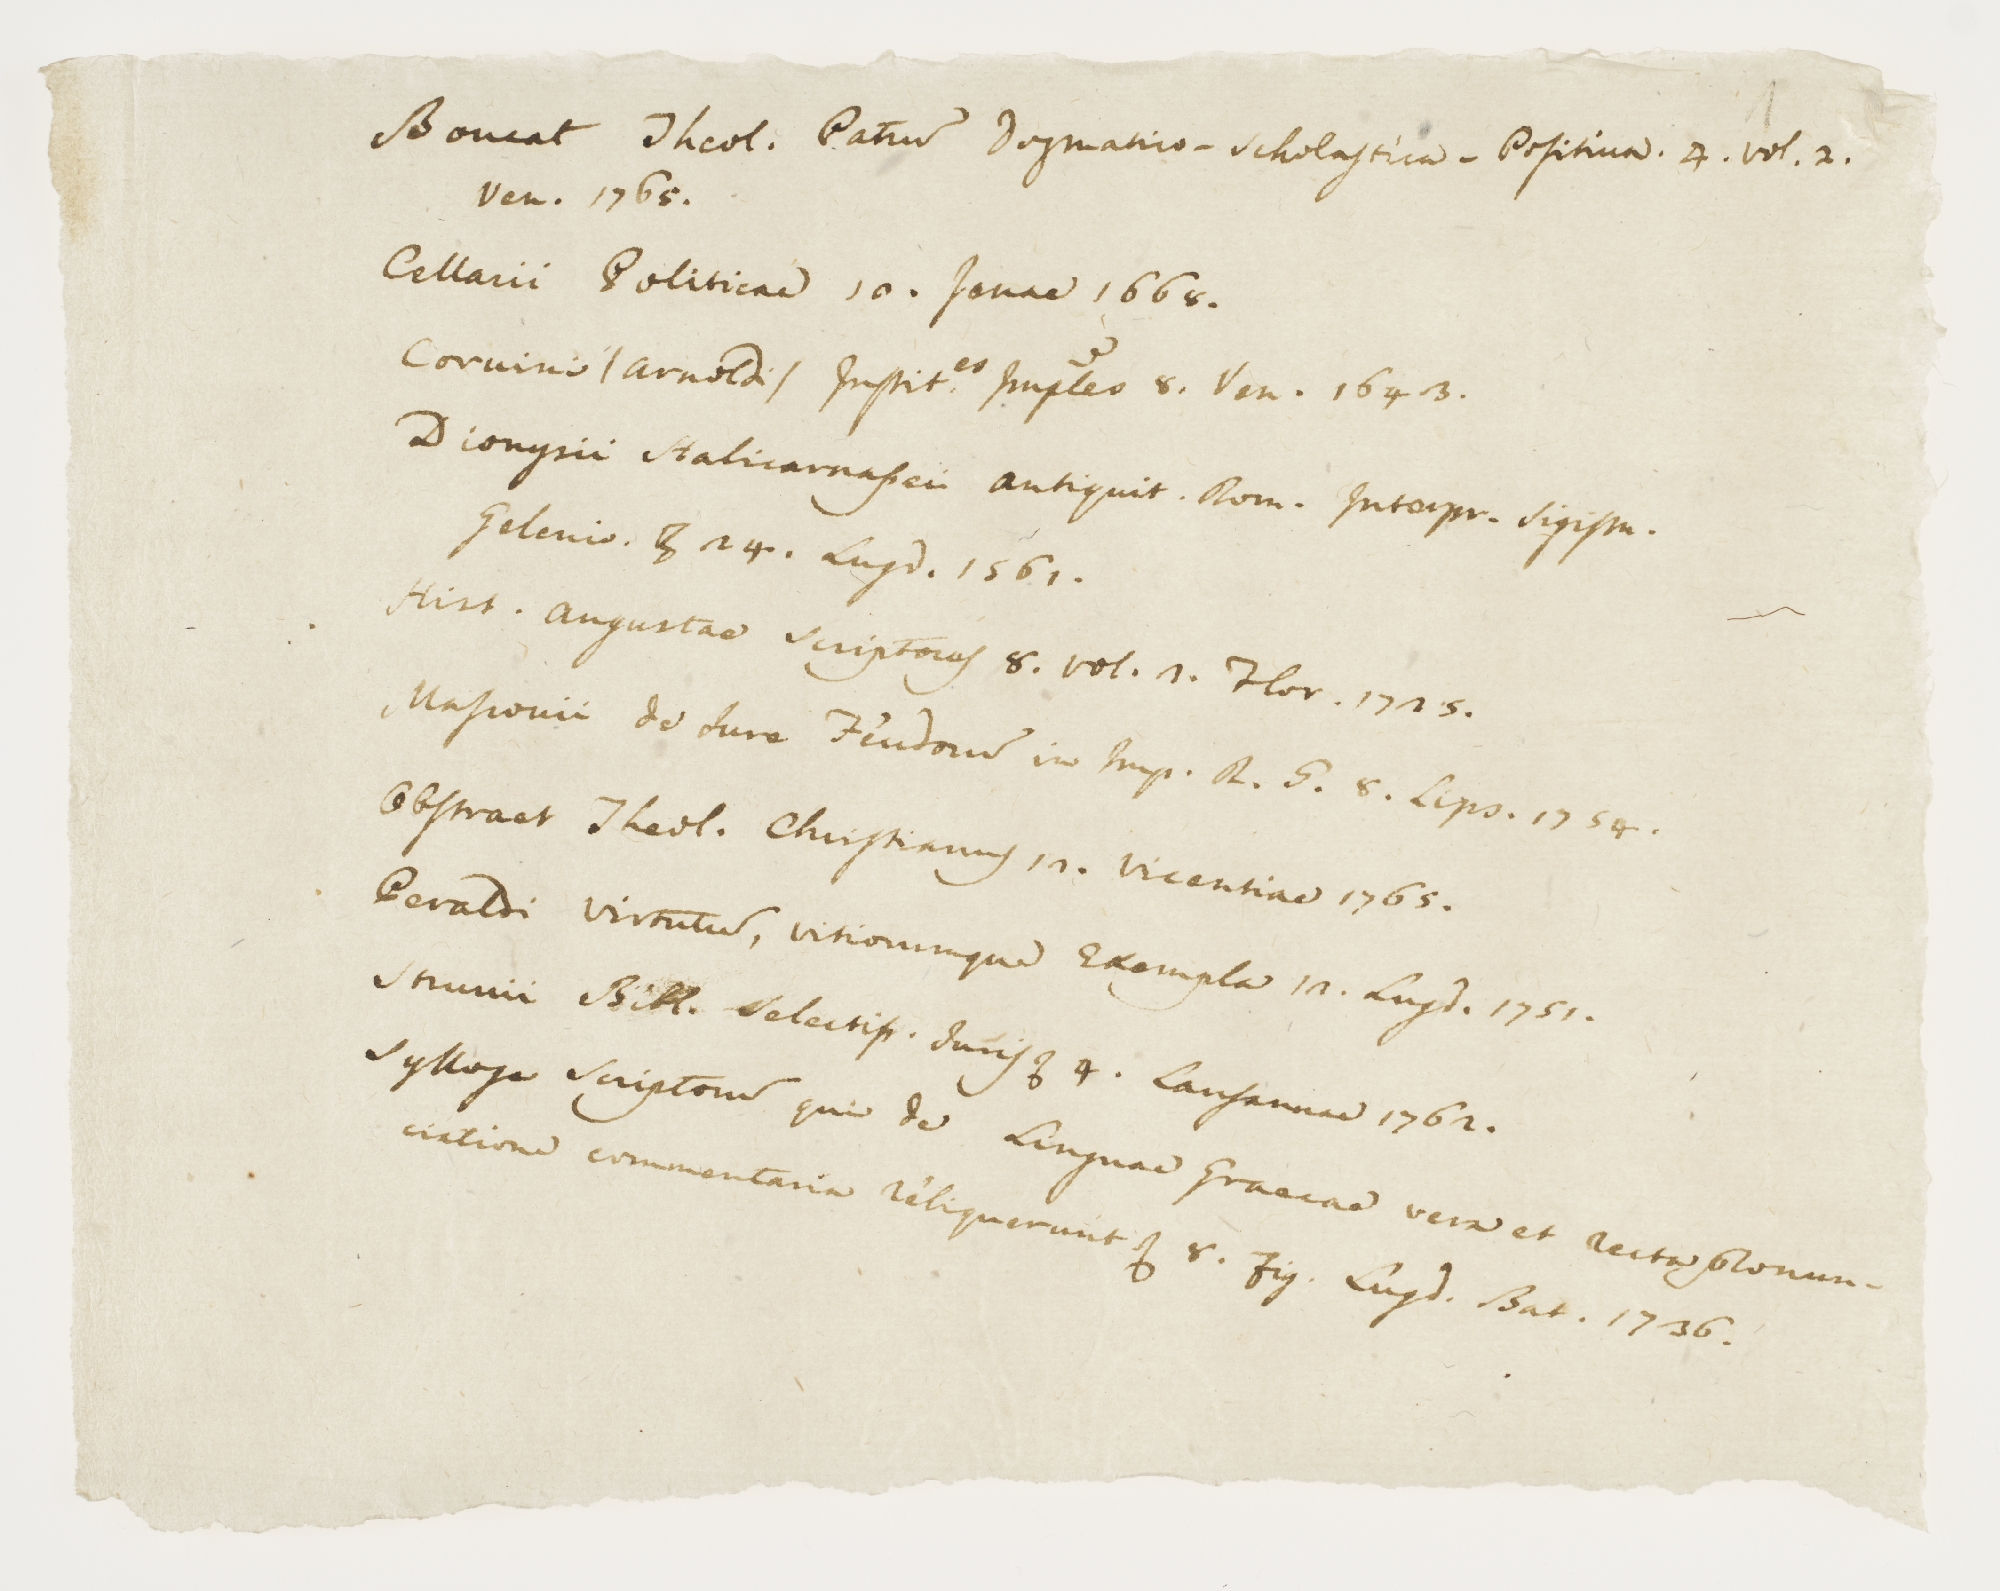 Boucat Theol. Patrum Dogmatico-Scholastica-Positiva. 4. vol. 2.
Ven. 1765.
Cellarii Politicae 10. Jenae 1668.
Corvini (Arnoldi) Instit.es 8. Ven. 1643.
Dionysii Halicarnassei Antiquit. Rom. Interpr. Sigism.
Gelenio. 24. Lugd. 1561.
Hist. Augustae Scriptores 8. vol. 2. Flor. 1725.
Massovii de Jure Feudorum in Imp. R. G. 8. Lips. 1754.
Obstraet Theol. Christianus 12. Vicentiae 1765.
Peraldi Virtutum, vitiorumque Exempla 12. Lugd. 1751.
Struvii Bibl. Selectiss. Juris 4. Lausannae 1762.
Sylloge Scriptorum qui de Linguae Graecae vera et recta Pronun-
ciatione commentaria reliquerunt 8. Fig. Lugd. Bat. 1736.